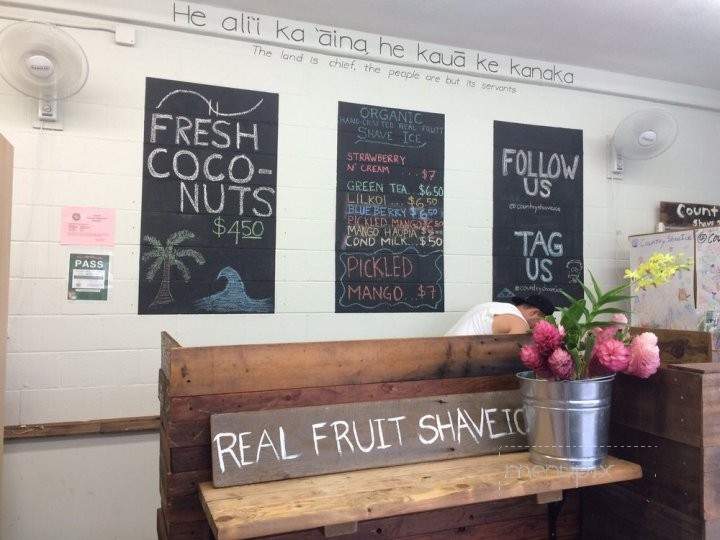 He ali'i ka 'āina, he kauā ke kanaka
The land is chief, the people are but its servants
FRESH
COCO-
NUTS
$4.50
ORGANIC
HAND-CRAFTED REAL FRUIT
SHAVE ICE
STRAWBERRY
N' CREAM ... $7
GREEN TEA ... $6.50
LILIKOI ... $6.50
BLUEBERRY ... $6.50
PICKLED MANGO
MANGO HAUPIA
COND MILK ... $.50
PICKLED
MANGO .. $7
FOLLOW
US
@countryshaveice
TAG
US
@countryshaveice
PASS
Count
Shave
Country Shave Ice
REAL FRUIT SHAVE IC
menupix